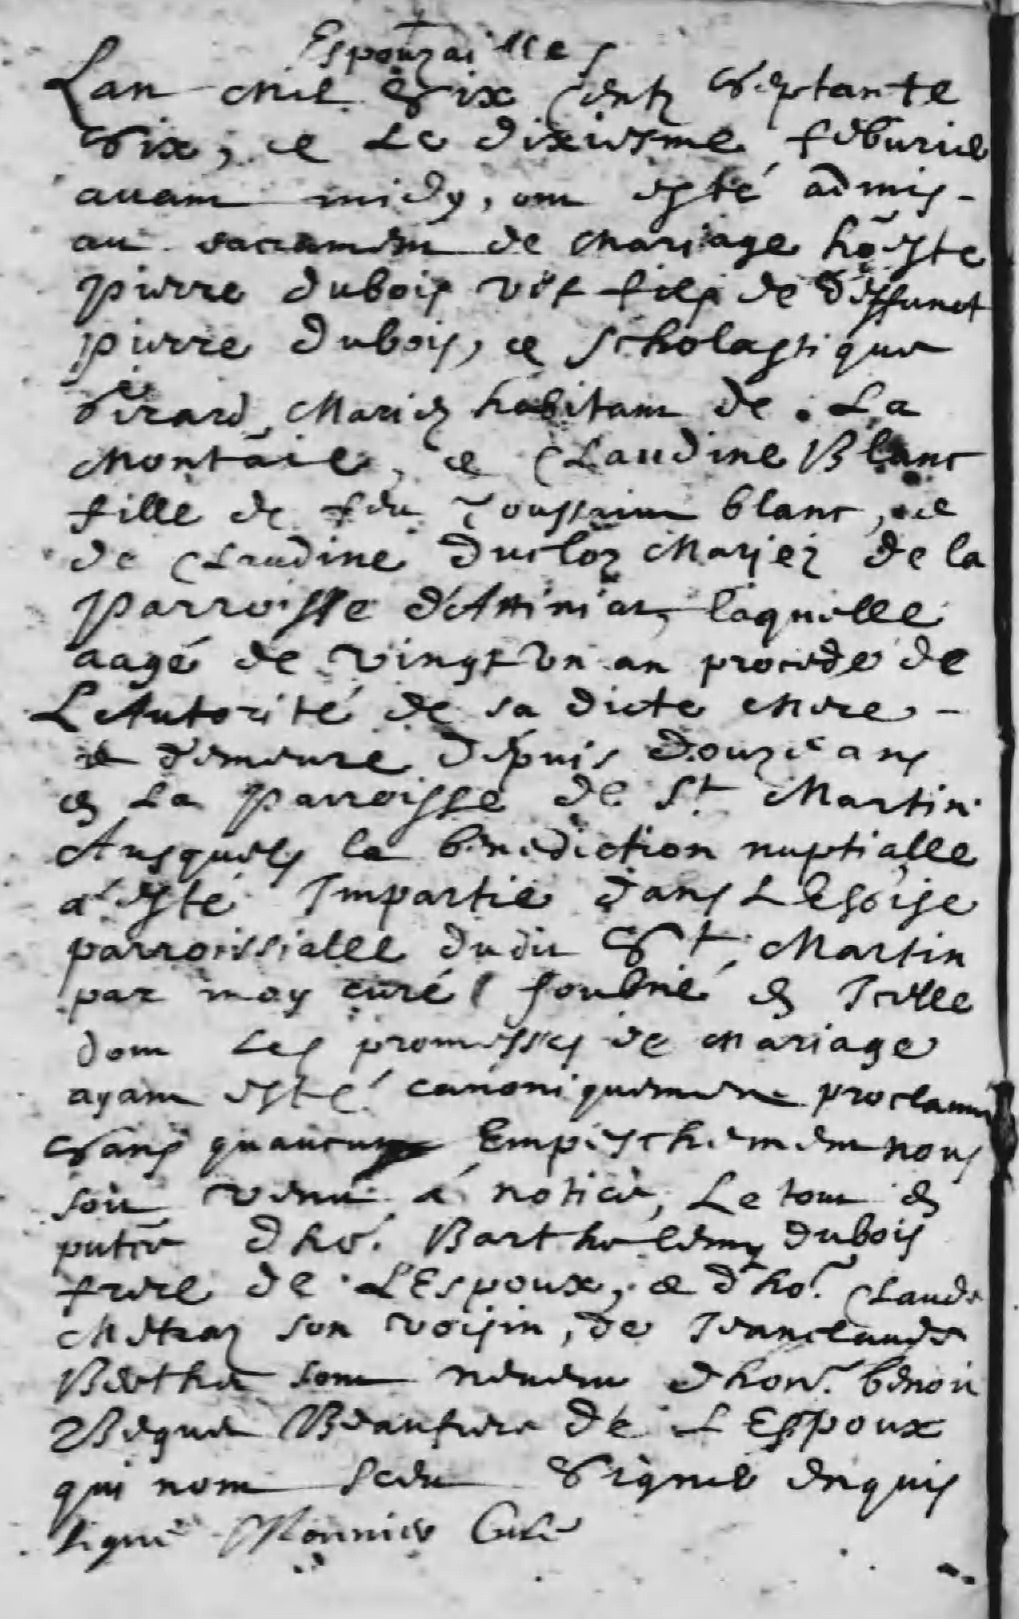 Espouzailles
Lan mil Six Centz Septante
Six, & Le dixiesme feburier
auant midy, ont esté admis -
au sacrament de Mariage hõeste
pierre dubois vef fils de deffunct
pierre dubois, & scholastique
Girard Mariez habitant de La
Montãie, & Claudine Blanc
fille de feu Toussaint blanc, &
de Claudine ducloz Mariez de la
parroisse d'Attiniat, laquelle
aagé de vingt vn an procede de
L'Autorité de sa dicte mere -
& demeure depuis douze ans
en La parroisse de St Martin
Ausquels la benediction nuptialle
a esté Impartie dans L'Esglise
parroissialle dudit St Martin
par moy curé soubné en Icelle
dont Les promesses de mariage
ayant esté canoniquement proclamé
Sans quaucun Empeschement nous
soit venu à notice, Le tout en
pntce d'ho. Barthelemy dubois
frere de L'Espoux, & d'ho. Claude
Metraz son voisin, de Jeanclaude
Berthet son neueu d'hon. benoit
Beaufrere de L'Espoux
qui nont sceu Signer enquis
signé Monnier Curé